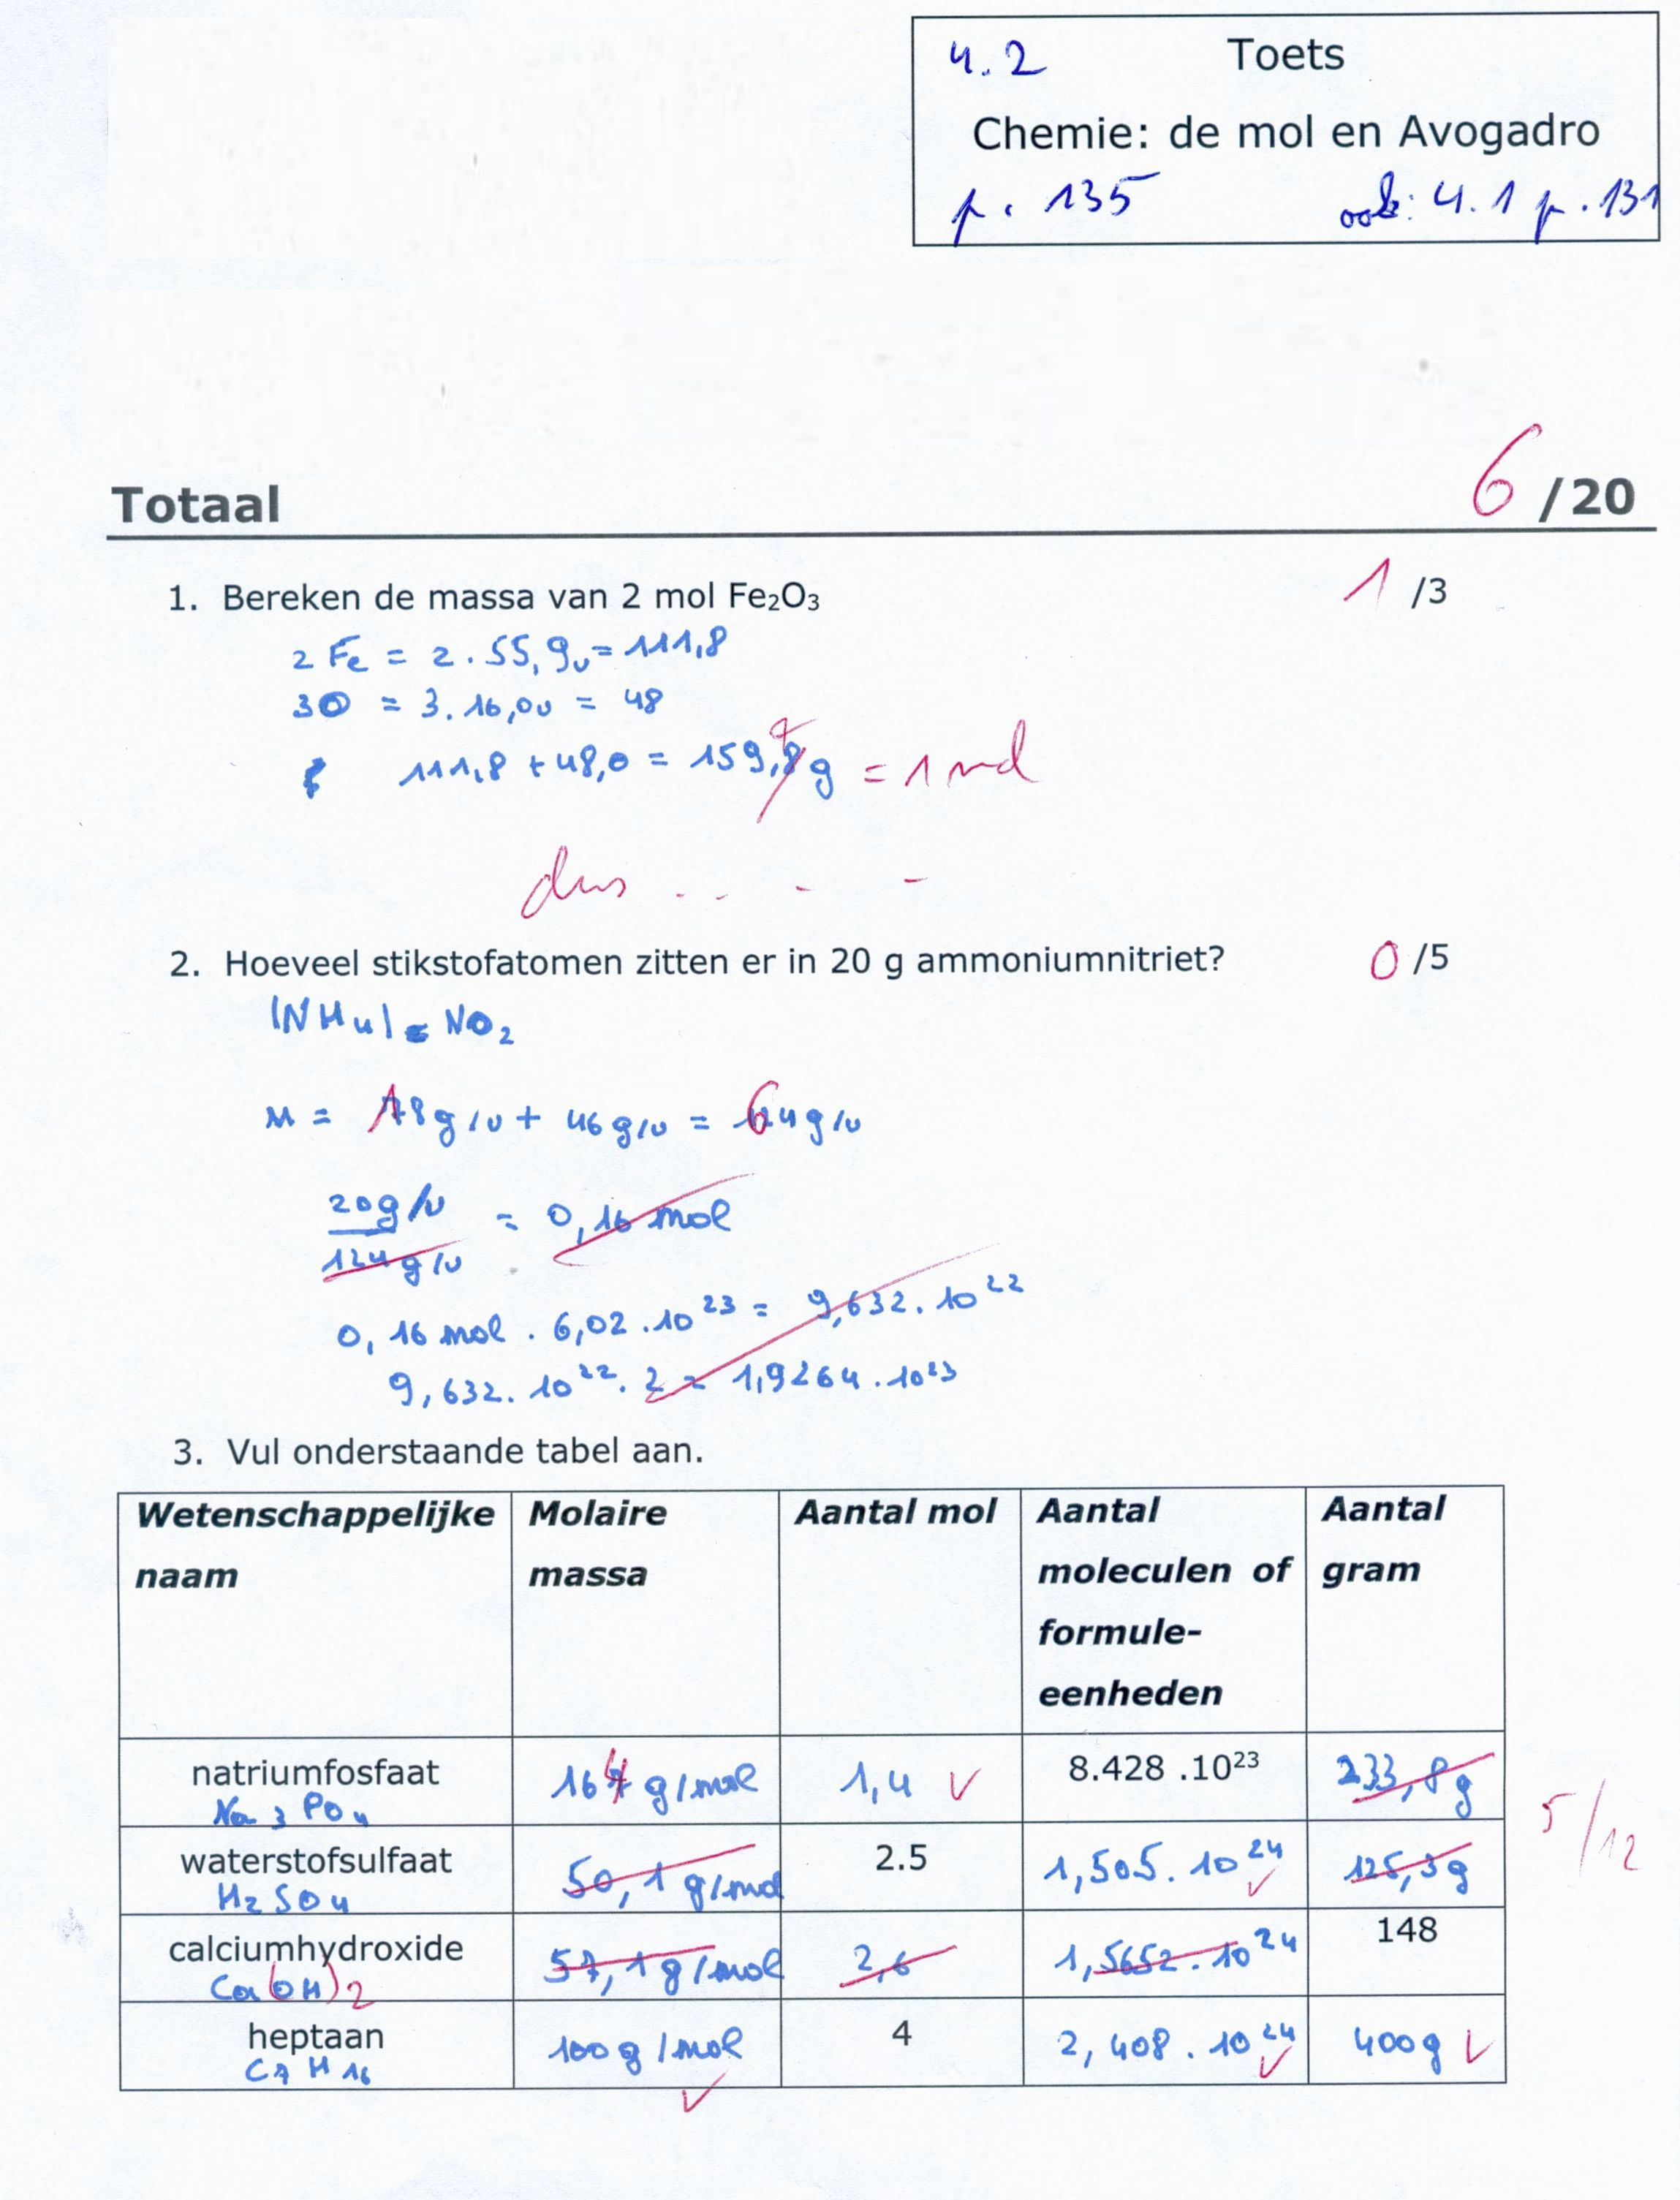 4.2 Toets
Chemie: de mol en Avogadro
p. 135 ook: 4.1 p. 131
Totaal 6 /20
1. Bereken de massa van 2 mol Fe₂O₃ 1 /3
2 Fe = 2 . 55,9u = 111,8
3O = 3 . 16,0u = 48
111,8 + 48,0 = 159,8 g = 1 mol
dus . . - -
2. Hoeveel stikstofatomen zitten er in 20 g ammoniumnitriet? 0 /5
(NH4) NO2
M = 18g/u + 46g/u = 64g/u
20g/u
= 0,16 mol
124g/u
0,16 mol . 6,02 . 10²³ = 9,632 . 10²²
9,632 . 10²² . 2 = 1,9264 . 10²³
3. Vul onderstaande tabel aan.
Wetenschappelijke naam Molaire massa Aantal mol Aantal moleculen of formule-eenheden Aantal gram
natriumfosfaat 164 g/mol 1,4 ✓ 8.428 .10²³ 233,8g
Na3PO4
5/12
waterstofsulfaat 50,1 g/mol 2.5 1,505 . 10²⁴ ✓ 125,3g
H2SO4
calciumhydroxide 57,1g/mol 2,6 1,5652 . 10²⁴ 148
Ca(OH)2
heptaan 100g/mol ✓ 4 2,408 . 10²⁴ ✓ 400g ✓
C7H16